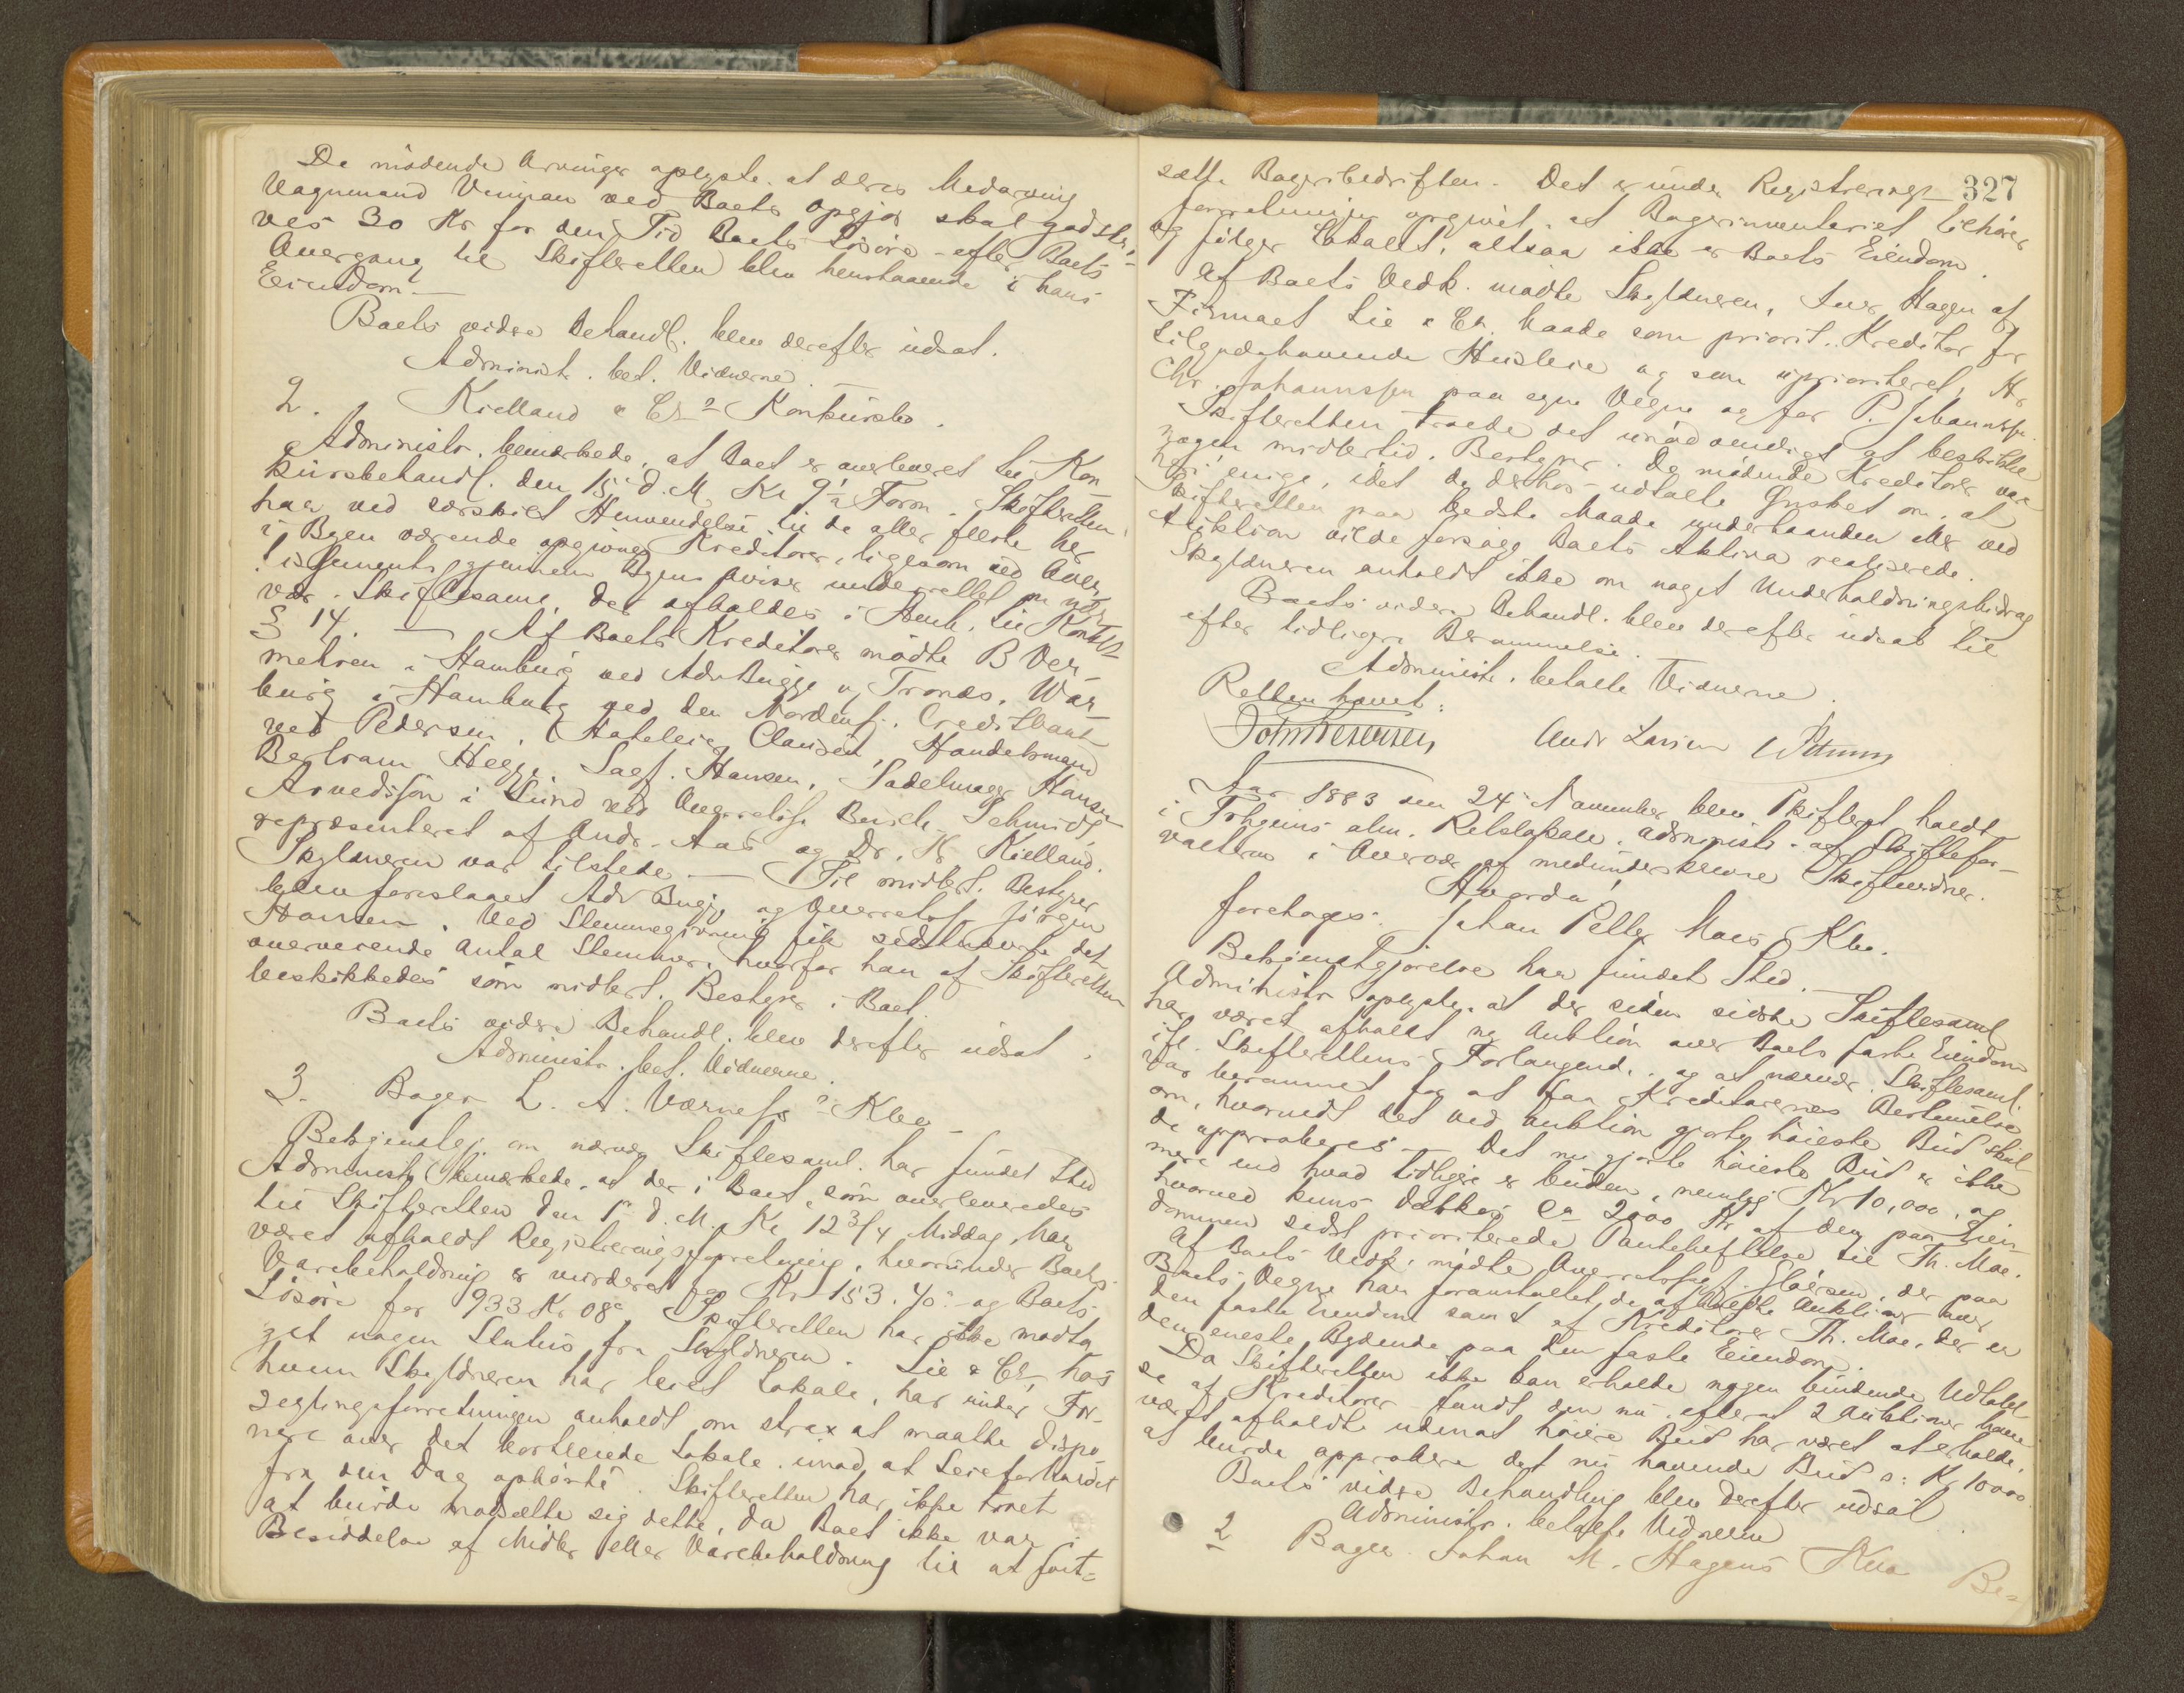 De mödende Arvinger oplyste, at deres Medarving
Vognmand Venjan ved Boets opgjör skal godskri-
ves 30 Kr for den Tid Boets Lösöre - efter Boets
Overgang til Skifteretten blev henstaaende i hans
Eiendom. —
Boets videre Behandl. blev derefter udsat.
Administr. bet. Vidnerne. —
2. Kielland & Cos Konkursbo.
Administr. bemærkede, at Boet er overleveret til Kon-
kursbehandl. den 15de d. M. Kl 9½ Form. Skifteretten
har ved særskilt Henvendelse til de aller fleste her
i Byen værende opgivne Kreditorer, ligesom ved Aver-
tissements gjennem Byens Aviser underrettet om nær-
vær. Skiftesaml. der afholdes i Henh. til Konksl
§ 14. — Af Boets Kreditorer mödte B Ver-
mehren i Hamburg ved Adv Bugge og Tronæs. War-
burg i Hamburg ved den Nordenfj. Creditbank
ved Pedersen. Hateleier Clausen, Handelsmand
Bertram Hegge, Sagf. Hansen, Sadelmager Hansen
Arvedsson i Lund ved Overretssf Buck. Schmidt
repræsenteret af Andr. Aas og Dr. K Kielland.
Skyldneren var tilstede. — Til midlert. Bestyrer
blev foreslaaet Adv Bugge og Overretsf Jörgen
Hansen. Ved Stemmegivning fik sidstnævnte det
overveiende Antal Stemmer, hvorfor han af Skifteretten
beskikkedes som midlert. Bestyrer i Boet.
Boets videre Behandl. blev derefter udsat.
Administr. bet. Vidnerne.
3. Bager L. A. Værnes's Kbo
Bekjendtgj om nærvær Skiftesaml. har fundet Sted
Administr bemærkede, at der i Boet, som overleveredes
til Skifteretten den 1ste d. M. Kl 12 3/4 Middag, har
været afholdt Registreringsforretning, hvorunder Boets
Varebeholdning er vurderet for Kr 153.40 og Boets
Lösöre for 933 Kr 08 Skifteretten har ikke modta-
get nogen Status fra Skyldneren. Lie & Co, hos
hvem Skyldneren har leiet Lokale, har under For-
seglingsforretningen anholdt om strax at maatte dispo-
nere over det bortleiede Lokale, imod, at Leieforholdet
fra den Dag ophörte. Skifteretten har ikke troet
at burde modsætte sig dette, da Boet ikke var i
Besiddelse af Midler eller Varebeholdning til at fort-
327
sætte Bageribedriften. Det er under Registrerings-
forretningen opgivet, at Bagerinventariet tilhörer
og fölger Lokalet, altsaa ikke er Boets Eiendom.
Af Boets Vedk. mödte Skyldneren, Iver Hagen af
Firmaet Lie & Co. baade som priorit. Kreditor for
tilgodehavende Husleie og som uprioriteret, H
Chr. Johannssen paa egne Vegne og for P. Johannssen.
Skifteretten troede det unödvendigt at beskikke
nogen midlertid. Bestyrer. De mödende Kreditorer var
heri enige, idet de derhos udtalte Önsket om, at
Skifteretten paa bedste Maade underhaanden eller ved
Auktion vilde forsöge Boets Aktiva realiserede.
Skyldneren anholdt ikke om noget Underholdningsbidrag
Boets videre Behandl. blev derefter udsat til
efter tidligere Berammelse.
Administr. betalte Vidnerne.
Retten hævet:
John Petersen Andr Larsen
Aar 1883 den 24 November blev Skifteret holdt
i Thjems alm. Retslokale, administr. af Skiftefor-
valteren i Overvær af medunderskrevne Skiftevidner.
Hvorda
foretoges: Johan Petter Moes Kbo.
Bekjendtgjörelse har fundet Sted. —
Administr oplyste, at der siden sidste Skiftesaml
har været afholdt ny Auktion over Boets faste Eiendom
ifl. Skifterettens Forlangend., og at nærvær. Skiftesaml.
var berammet for at faa Kreditorernes Bestemmelse
om, hvorvidt det ved Auktion gjorte höieste Bud skul-
de approberes. — Det nu gjorte höieste Bud er ikke
mere end hvad tidligere er buden, nemlig Kr 10,000, og
hvorved kuns dækkes ca 2000 Kr af den paa Eien-
dommen sidst prioriterede Panteheftelse til Th. Moe.
Af Boets Vedk. mödte Overretssagf. Gløersen, der paa
Boets Vegne har foranstaltet de afholdte Auktioner over
den faste Eiendom samt af Kreditorer Th. Moe, der er
den eneste Bydende paa den faste Eiendom.
Da Skifteretten ikke kan erholde nogen bindende Udtalel-
se af Kreditorer fandt den nu, efterat 2 Auktioner have
været afholdt udenat höiere Bud har været at erholde,
at burde approbere det nu havende Bud o: Kr 10000.
Boets videre Behandling blev derefter udsat
Administr. betalte Vidnerne
2 Bager Johan M. Hagens Kbo Be-